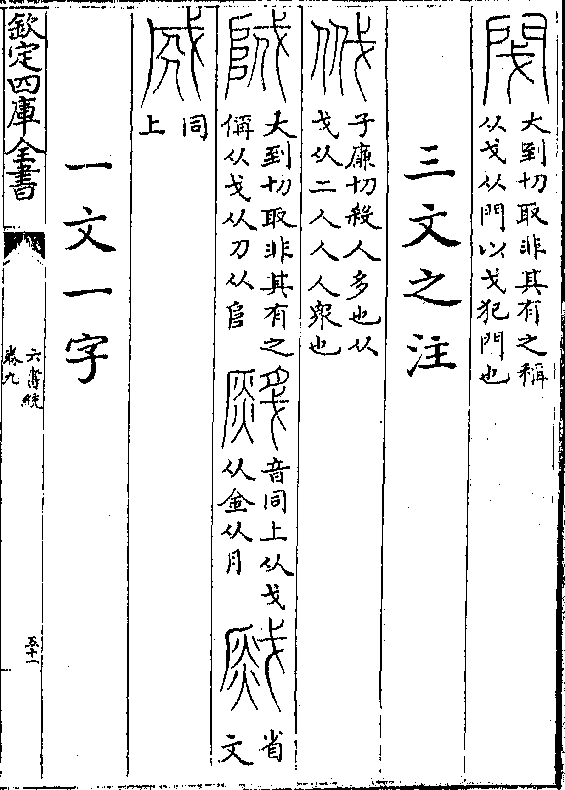 大到切取非其有之稱
从戈从門以戈犯門也
三文之注
子廉切殺人多也从
戈从二人人人衆也
大到切取非其有之
偁从戈从刀从
音同上从戈
从金从月
省
文
同
上
一文一字
欽定四庫全書
六書統
卷九
五十一